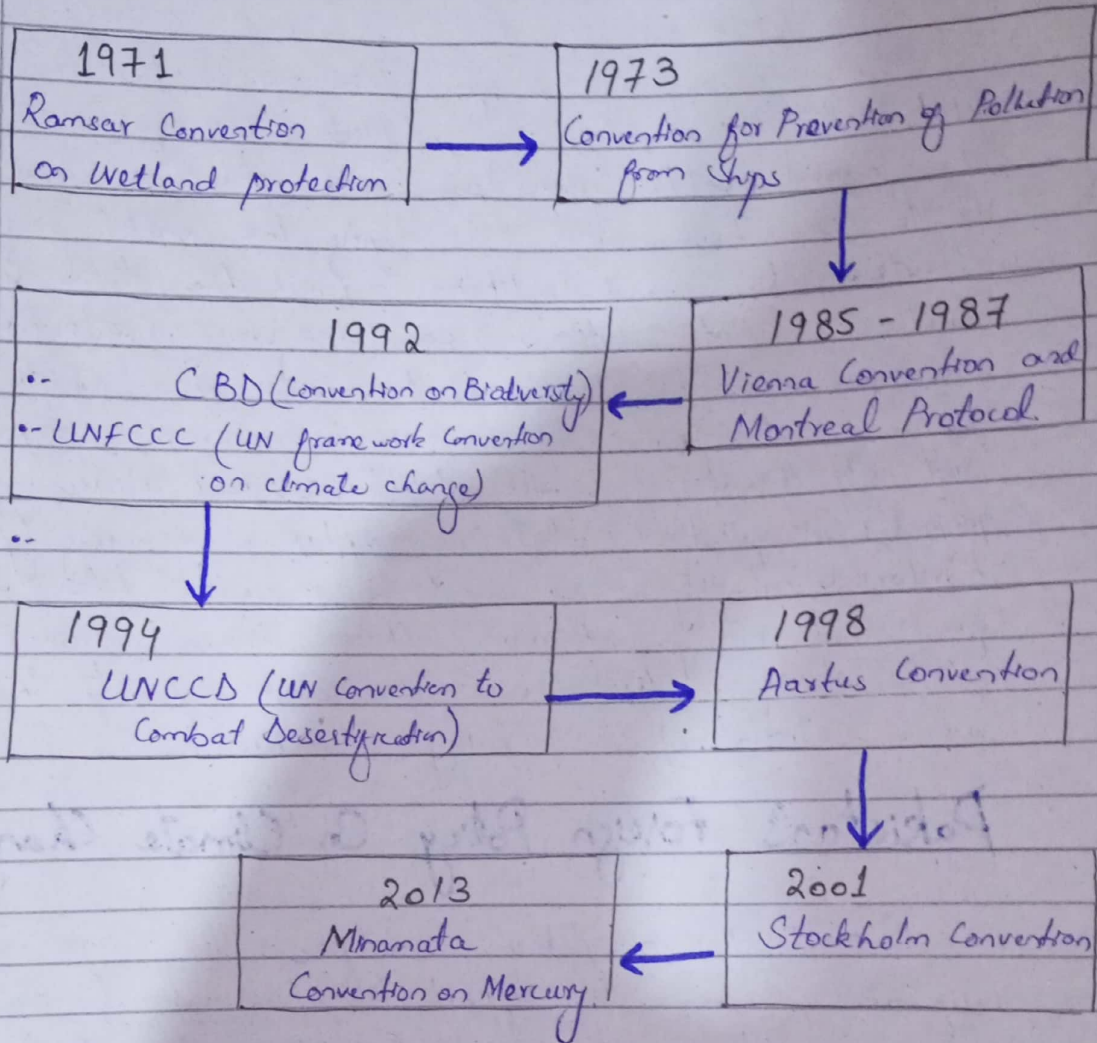 1971
Ramsar Convention
on Wetland protection
1973
Convention for Prevention of Pollution
from Ships
1985 - 1987
Vienna Convention and
Montreal Protocol.
1992
•- CBD (Convention on Biodiversty)
•- UNFCCC (UN frame work Convention
on climate change)
•-
1994
UNCCD (UN Convention to
Combat Desertification)
1998
Aartus Convention
2001
Stockholm Convention
2013
Minamata
Convention on Mercury